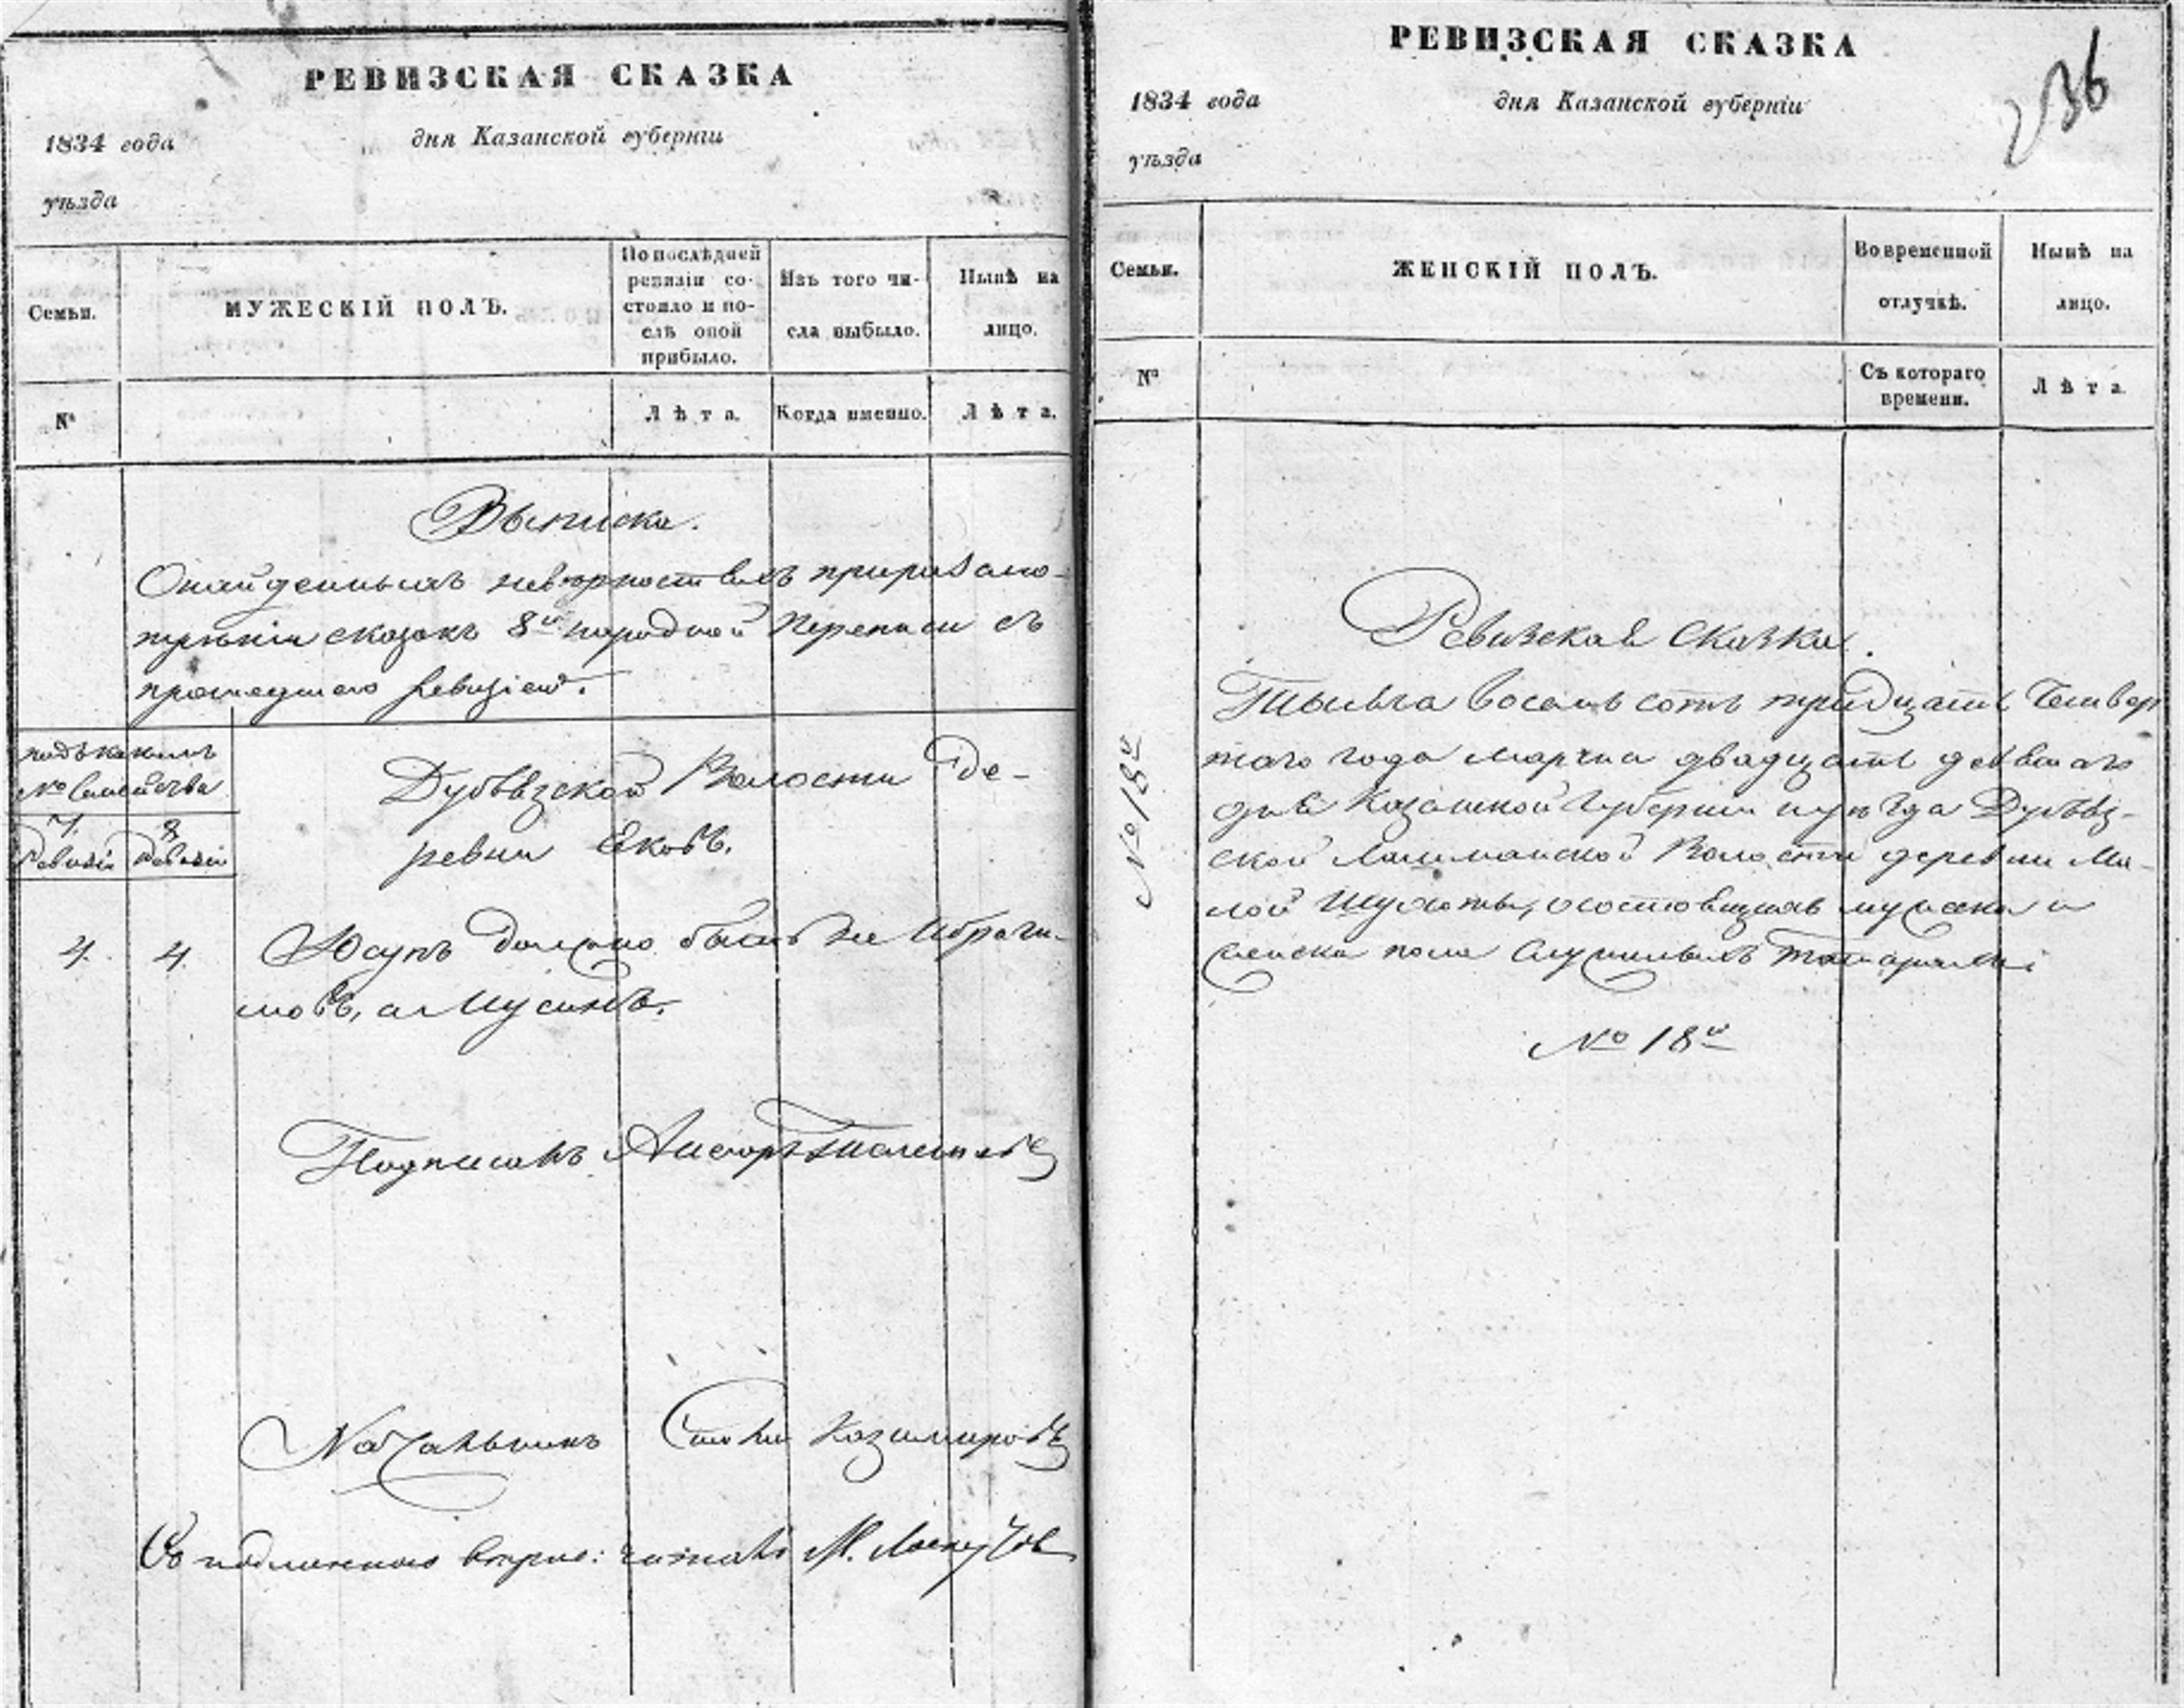 РЕВИЗСКАЯ СКАЗКА
1834 года дня Казанской губерніи
уѣзда
Семьи.
МУЖЕСКІЙ ПОЛЪ.
По послѣдней ревизіи состояло и послѣ оной прибыло.
Изъ того числа выбыло.
Нынѣ на лицо.
№
Лѣта.
Когда именно.
Лѣта.
Выписка.
О найденныхъ невѣрностяхъ при разсмо-
трѣніи сказокъ 8й народной переписи съ
прошедшею ревизіею.
подъ какимъ
№ семейства
7. 8
Ревизіи Ревизіи
Дубъязской Волости Де-
ревни Ековъ.
4. 4.
Юсупъ должно быть не Ибраги-
мовъ, а Мусинъ.
Подписалъ
Начальникъ Казимировъ
Съ подлиннымъ вѣрно: читалъ М.
РЕВИЗСКАЯ СКАЗКА
236
1834 года дня Казанской губерніи
уѣзда
Семьи.
ЖЕНСКІЙ ПОЛЪ.
Во временной отлучкѣ.
Нынѣ на лицо.
№
Съ котораго времени.
Лѣта
Ревизская Сказка.
Тысяча восемь сотъ тридцать Четвер
таго года марта двадцать девятаго
дня Казанской Губерніи и уѣзда Дубъяз-
ской Лашманской Волости деревни Ма-
лой Шухоты, о состоящихъ мужска и
женска пола служилыхъ татарахъ
№ 18й
№ 18й